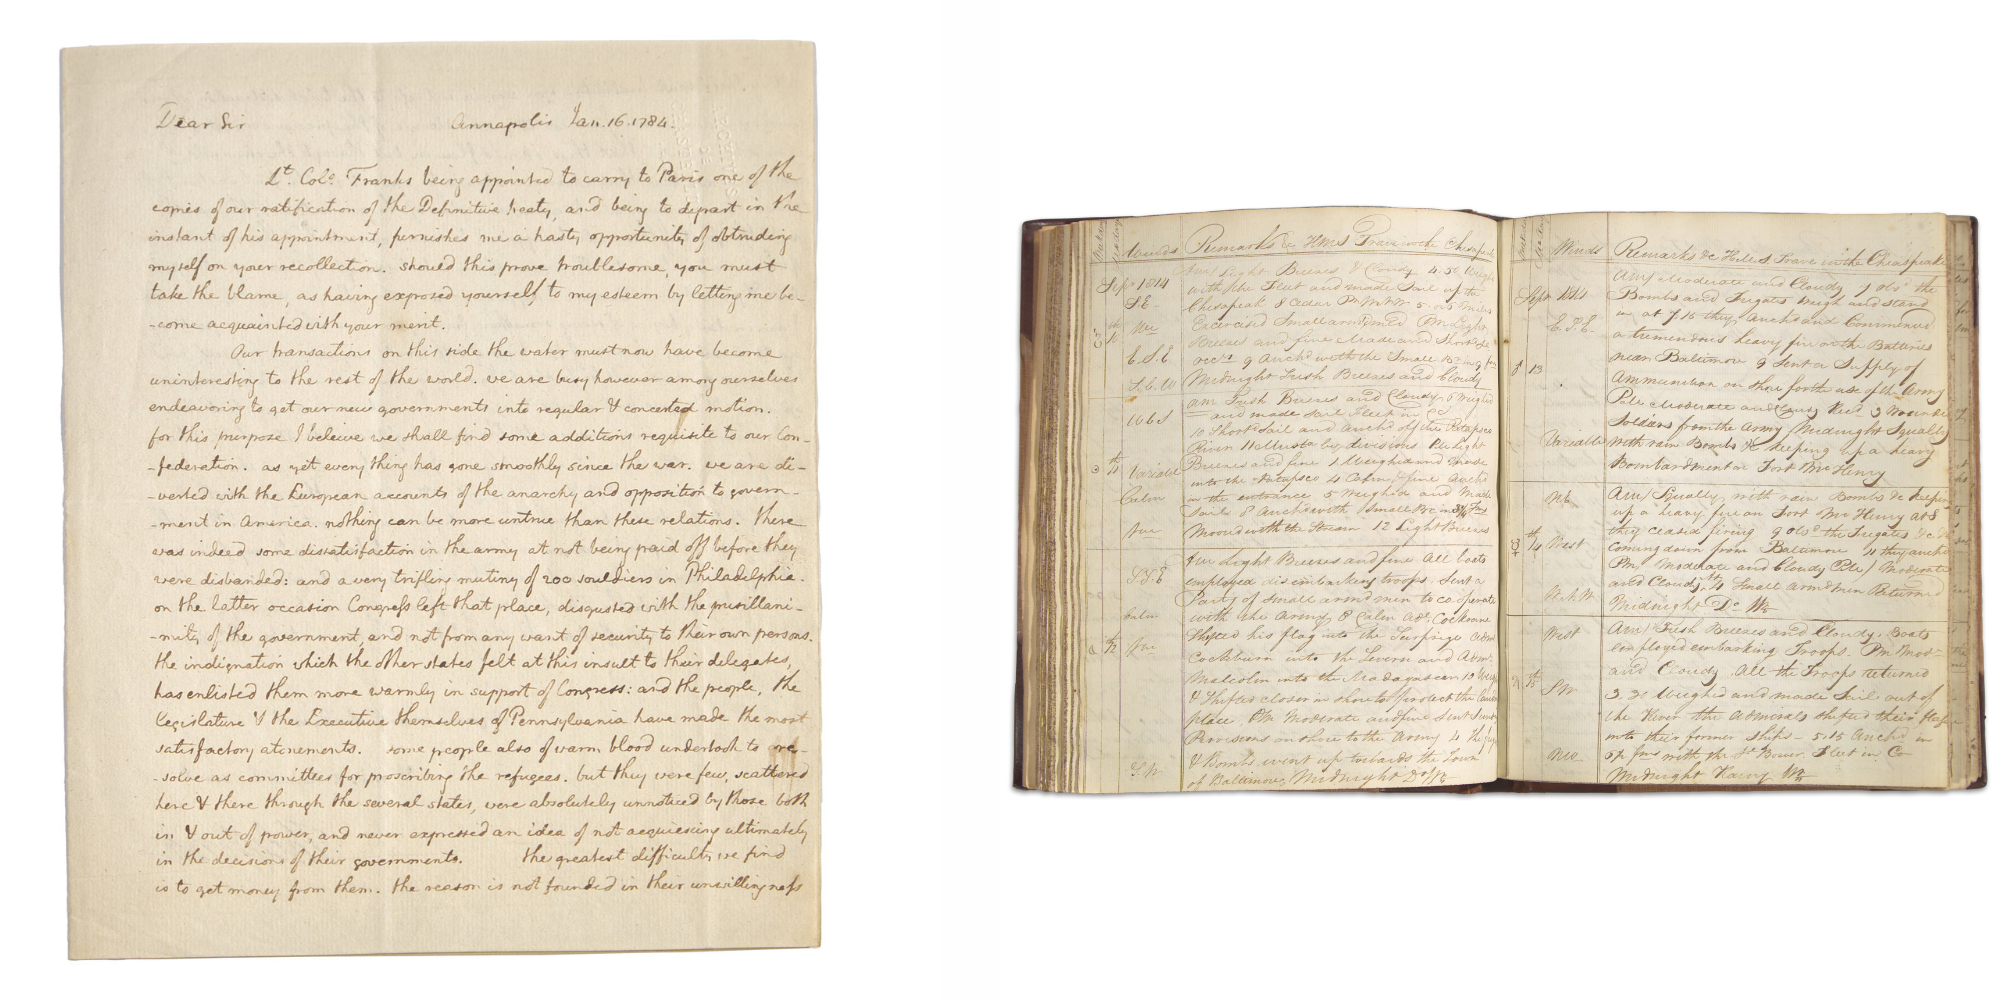 Dear Sir Annapolis Jan. 16. 1784.
Lt. Colo. Franks being appointed to carry to Paris one of the
copies of our ratification of the Definitive treaty, and being to depart in the
instant of his appointment, furnishes me a hasty opportunity of obtruding
myself on your recollection. should this prove troublesome, you must
take the blame, as having exposed yourself to my esteem by letting me be-
-come acquainted with your merit.
Our transactions on this side the water must now have become
uninteresting to the rest of the world. we are busy however among ourselves
endeavoring to get our new governments into regular & concerted motion.
for this purpose I beleive we shall find some additions requisite to our Con-
-federation. as yet every thing has gone smoothly since the war. we are di-
-verted with the European accounts of the anarchy and opposition to govern-
-ment in America. nothing can be more untrue than these relations. there
was indeed some dissatisfaction in the army at not being paid off before they
were disbanded: and a very trifling mutiny of 200 souldiers in Philadelphia.
on the latter occasion Congress left that place, disgusted with the pusillani-
-mity of the government, and not from any want of security to their own persons.
the indignation which the other states felt at this insult to their delegates,
has enlisted them more warmly in support of Congress: and the people, the
legislature & the Executive themselves of Pennsylvania have made the most
satisfactory atonements. some people also of warm blood undertook to re-
-solve as committees for proscribing the refugees. but they were few, scattered
here & there through the several states, were absolutely unnoticed by those both
in & out of power, and never expressed an idea of not acquiescing ultimately
in the decisions of their governments. the greatest difficulty we find
is to get money from them. the reason is not founded in their unwillingness
Winds Remarks &c HMS in the Chesapeak
Sept 1814 Am/ Light Breezes & Cloudy
S E with the Fleet and made Sail up the
Chesapeak
Exercised Small arm'd men Pm Light
Breezes and fine
E.S.E 9 Anchd with the Small Br in
S.E.W Midnight Fresh Breezes and Cloudy
Am Fresh Breezes and Cloudy 5 weighed
W b S and made Sail Fleet in Co
10 Shortd Sail and Anchd off the Patapsco
River 11 by divisions Pm Light
Variable Breezes and fine 1 Weighed and made
into the Patapsco 4 Calm & fine Anchd
Calm in the entrance 5 Weighed and made
Sail 8 Anchd with Small Br in
Moored with the Stream 12 Light Breezes
Am Light Breezes and fine All boats
employed disembarking troops. Sent a
Party of Small arm'd men to co operate
Calm with the Army 8 Calm Adl. Cochrane
12 Shifted his flag into the Surprize Adml
Cockburn into the Severn and Adml
Malcolm into the Madagascar
& Shifted closer in shore to protect the landing
place. Pm Moderate and fine Sent
Provisions on shore to the Army 4 the
& Bombs went up towards the Town
of Baltimore, Midnight Do Wr
Winds Remarks &c H.M.S in the Cheasapeake
Am/ Moderate and Cloudy 7 obsd the
Sept 1814 Bombs and Frigates weigh and stand
E.S.E. in at 7.15 they Anchd and Commenced
a tremendous heavy fire on the Batteries
13 near Baltimore 9 Sent a Supply of
Ammunition on shore for the use of the Army
Pm Moderate and Cloudy Recd 3 Wounded
Soldiers from the Army Midnight Squally
Variable with rain Bombs &c keeping up a heavy
Bombardment on Fort McHenry
NE Am/ Squally, with rain Bombs &c keeping
up a heavy fire on Fort McHenry at 8
they ceased firing 9 obsd the Frigates &c
14 West coming down from Baltimore 4 they anchd
Pm/ Moderate and Cloudy
and Cloudy Small arm'd men Returned
Midnight Do Wr
West Am/ Fresh Breezes and Cloudy. Boats
employed embarking Troops. Pm Modte
and Cloudy. All the Troops returned
15 SW 3.30 Weighed and made Sail out of
the River the Admirals shifted their flags
into their former Ships - 5.15 Anchd in
fms with the Bower. Fleet in Co
Midnight Wr